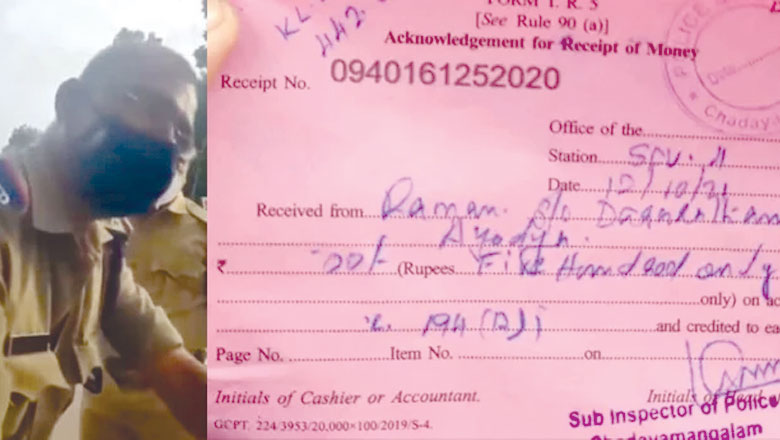 FORM T. R. 5
[See Rule 90 (a)]
KL-
442
Acknowledgement for Receipt of Money
Receipt No. 0940161252020
POLICE
Chaday
Office of the
Station SFV. 11
Date 12/10/21
Received from Raman. S/o
Ayodya.
₹ 500/- (Rupees Five Hundred only
only) on
194 (D) i
and credited to
Page No. Item No. on
Initials of Cashier or Accountant. Initials of Head
GCPT. 224/3953/20,000×100/2019/S-4.
Sub Inspector of Police
Chadayamangalam